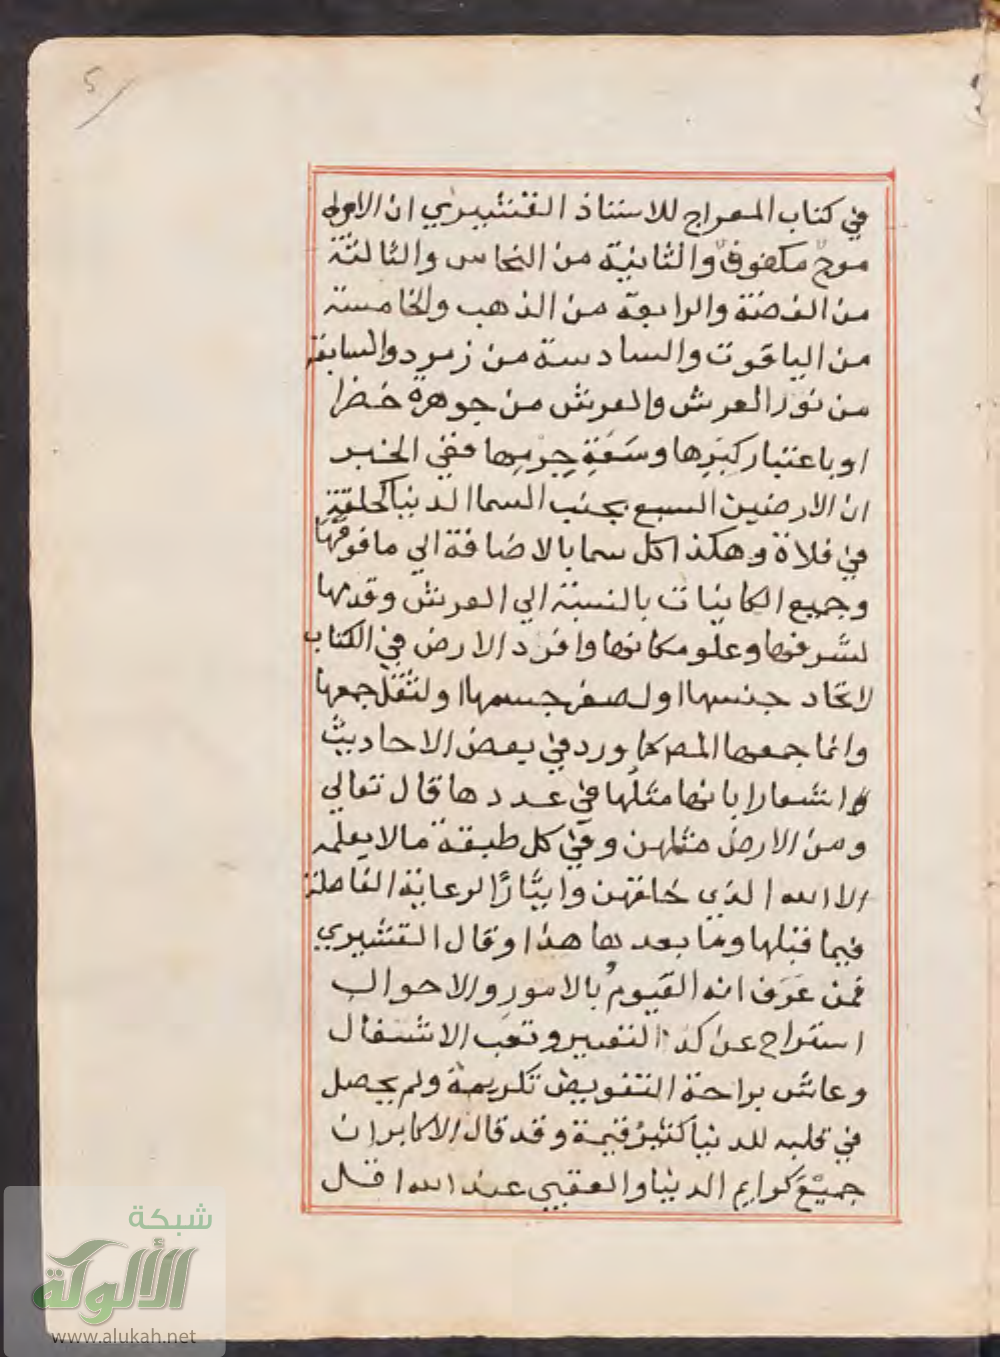 5
في كتاب المعراج للاستاذ القشيري ان الاولى
موج مكفوف والثانية من النحاس والثالثة
من الفضة والرابعة من الذهب والخامسة
من الياقوت والسادسة من زمرد والسابعة
من نور العرش والعرش من جوهرة خضرا
او باعتبار كِبَرِها وسَعَةِ جِرْمِها ففي الخبر
ان الارضين السبع بجنب السما الدنيا كحلقة
في فلاة وهكذا كل سما بالاضافة الي ما فوقها
وجميع الكاينات بالنسبة الي العرش وقدمها
لشرفها وعلو مكانها وافرد الارض في الكتاب
لاتحاد جنسها او لصغر جسمها او لثقل جمعها
وانما جمعها المص كما ورد في بعض الاحاديث
اشعارا بانها مثلُها في عددها قال تعالي
ومن الارض مثلهن وفي كل طبقة ما لا يعلمه
الا الله الذي خلقهن وايثارًا لرعاية الفاصلة
فيما قبلها وما بعدها هذا وقال القشيري
فمن عَرَف انه القيومُ بالامور والاحوال
استراح عن كد التعبير وتعب الاشتغال
وعاش براحة التفويض تكريمة ولم يحصل
في قلبه للدنيا كثيرُ قيمة وقد قال الاكابر ان
جميعَ كرايم الدنيا والعقبي عند الله اقل
شبكة
الألوكة
www.alukah.net